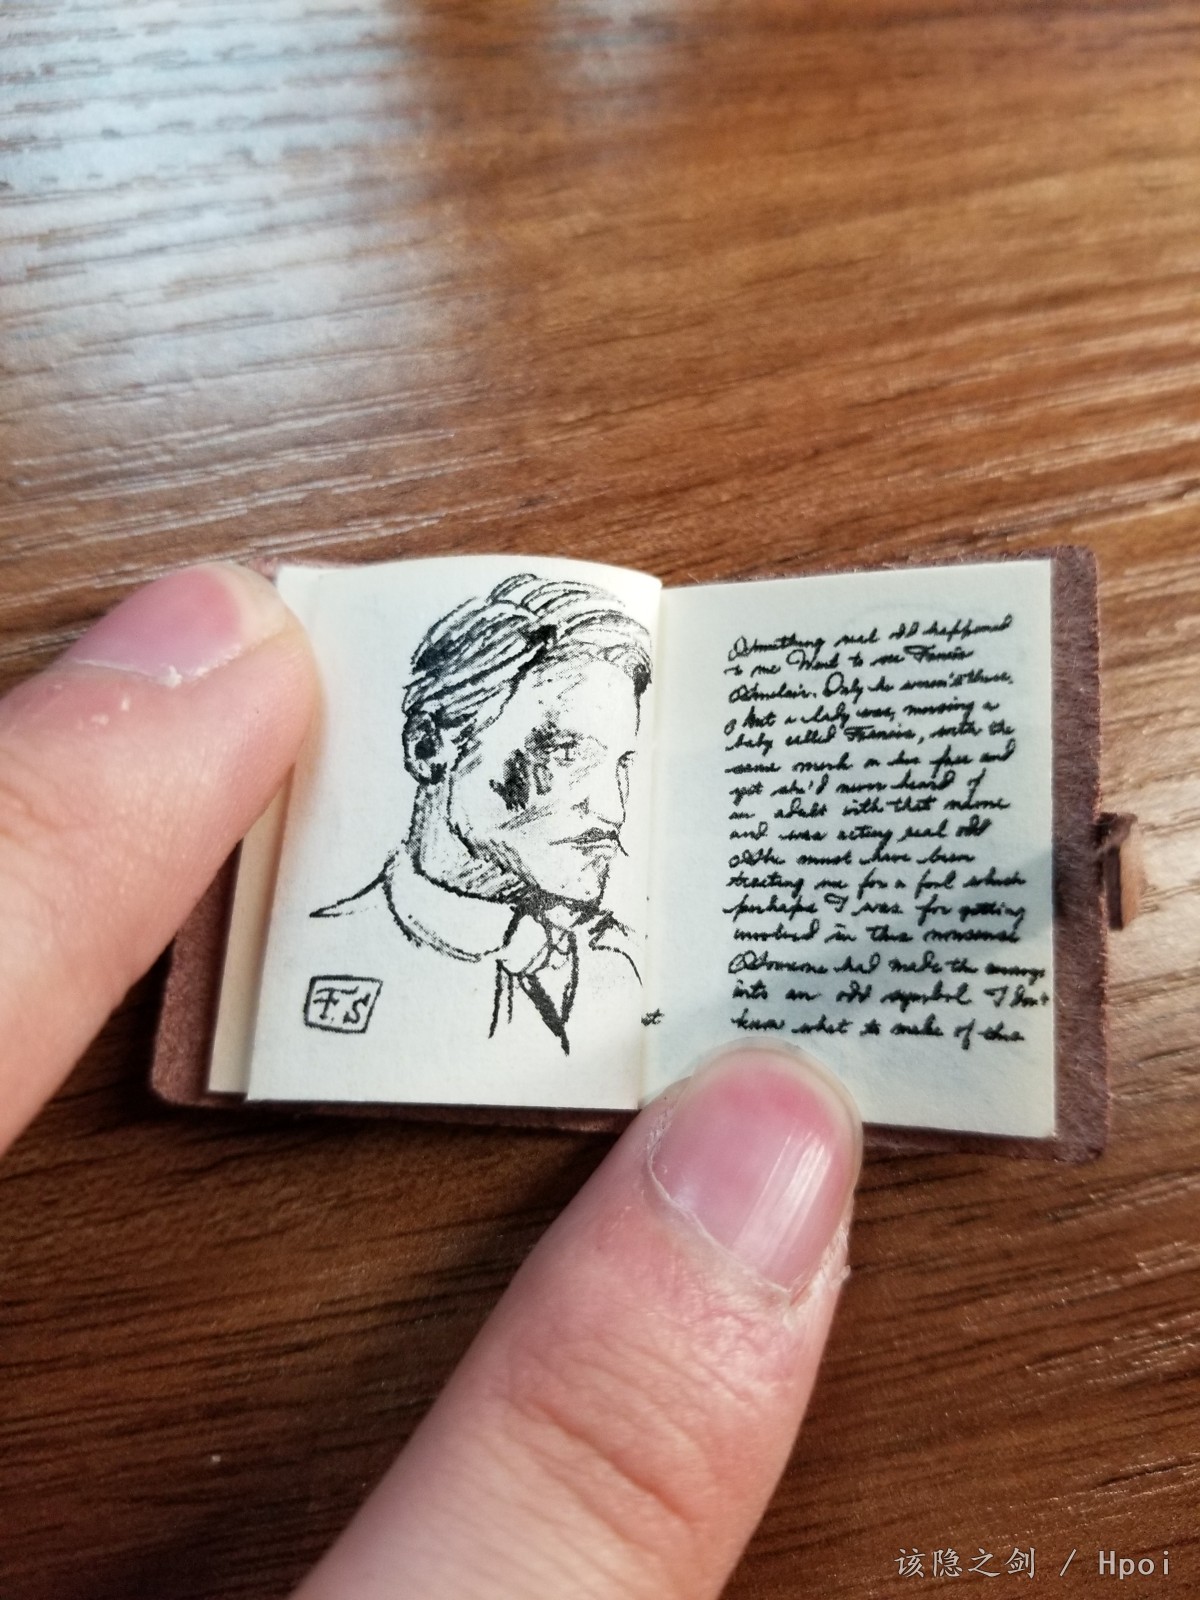 F.S
st
Something real odd happened
to me Went to see Francis
Sinclair. Only he wasn't there,
but a lady was, nursing a
baby called Francis, with the
same mark on his face and
yet she'd never heard of
an adult with that name
and was acting real odd
She must have been
treating me for a fool which
perhaps I was for getting
involved in this nonsense
Someone had made the
into an odd symbol I don't
know what to make of this
该隐之剑 / Hpoi